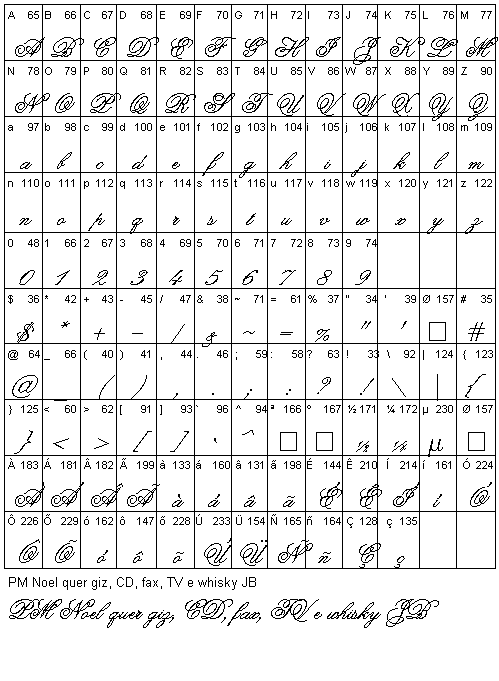 A 65 B 66 C 67 D 68 E 69 F 70 G 71 H 72 I 73 J 74 K 75 L 76 M 77
A B C D E F G H I J K L M
N 78 O 79 P 80 Q 81 R 82 S 83 T 84 U 85 V 86 W 87 X 88 Y 89 Z 90
N O P Q R S T U V W X Y Z
a 97 b 98 c 99 d 100 e 101 f 102 g 103 h 104 i 105 j 106 k 107 l 108 m 109
a b c d e f g h i j k l m
n 110 o 111 p 112 q 113 r 114 s 115 t 116 u 117 v 118 w 119 x 120 y 121 z 122
n o p q r s t u v w x y z
0 48 1 66 2 67 3 68 4 69 5 70 6 71 7 72 8 73 9 74
0 1 2 3 4 5 6 7 8 9
$ 36 * 42 + 43 - 45 / 47 & 38 ~ 71 = 61 % 37 " 34 ' 39 Ø 157 # 35
$ * + - / & ~ = % " ' □ #
@ 64 _ 66 ( 40 ) 41 , 44 . 46 ; 59 : 58 ? 63 ! 33 \ 92 | 124 { 123
@ _ ( ) , . ; : ? ! \ | {
} 125 < 60 > 62 [ 91 ] 93 ` 96 ^ 94 ª 166 º 167 ½ 171 ¼ 172 µ 230 Ø 157
} < > [ ] ` ^ □ □ ½ ¼ µ □
À 183 Á 181 Â 182 Ã 199 à 133 á 160 â 131 ã 198 É 144 Ê 210 Í 214 í 161 Ó 224
À Á Â Ã à á â ã É Ê Í í Ó
Ô 226 Õ 229 ó 162 ô 147 õ 228 Ú 233 Ü 154 Ñ 165 ñ 164 Ç 128 ç 135
Ô Õ ó ô õ Ú Ü Ñ ñ Ç ç
PM Noel quer giz, CD, fax, TV e whisky JB
PM Noel quer giz, CD, fax, TV e whisky JB